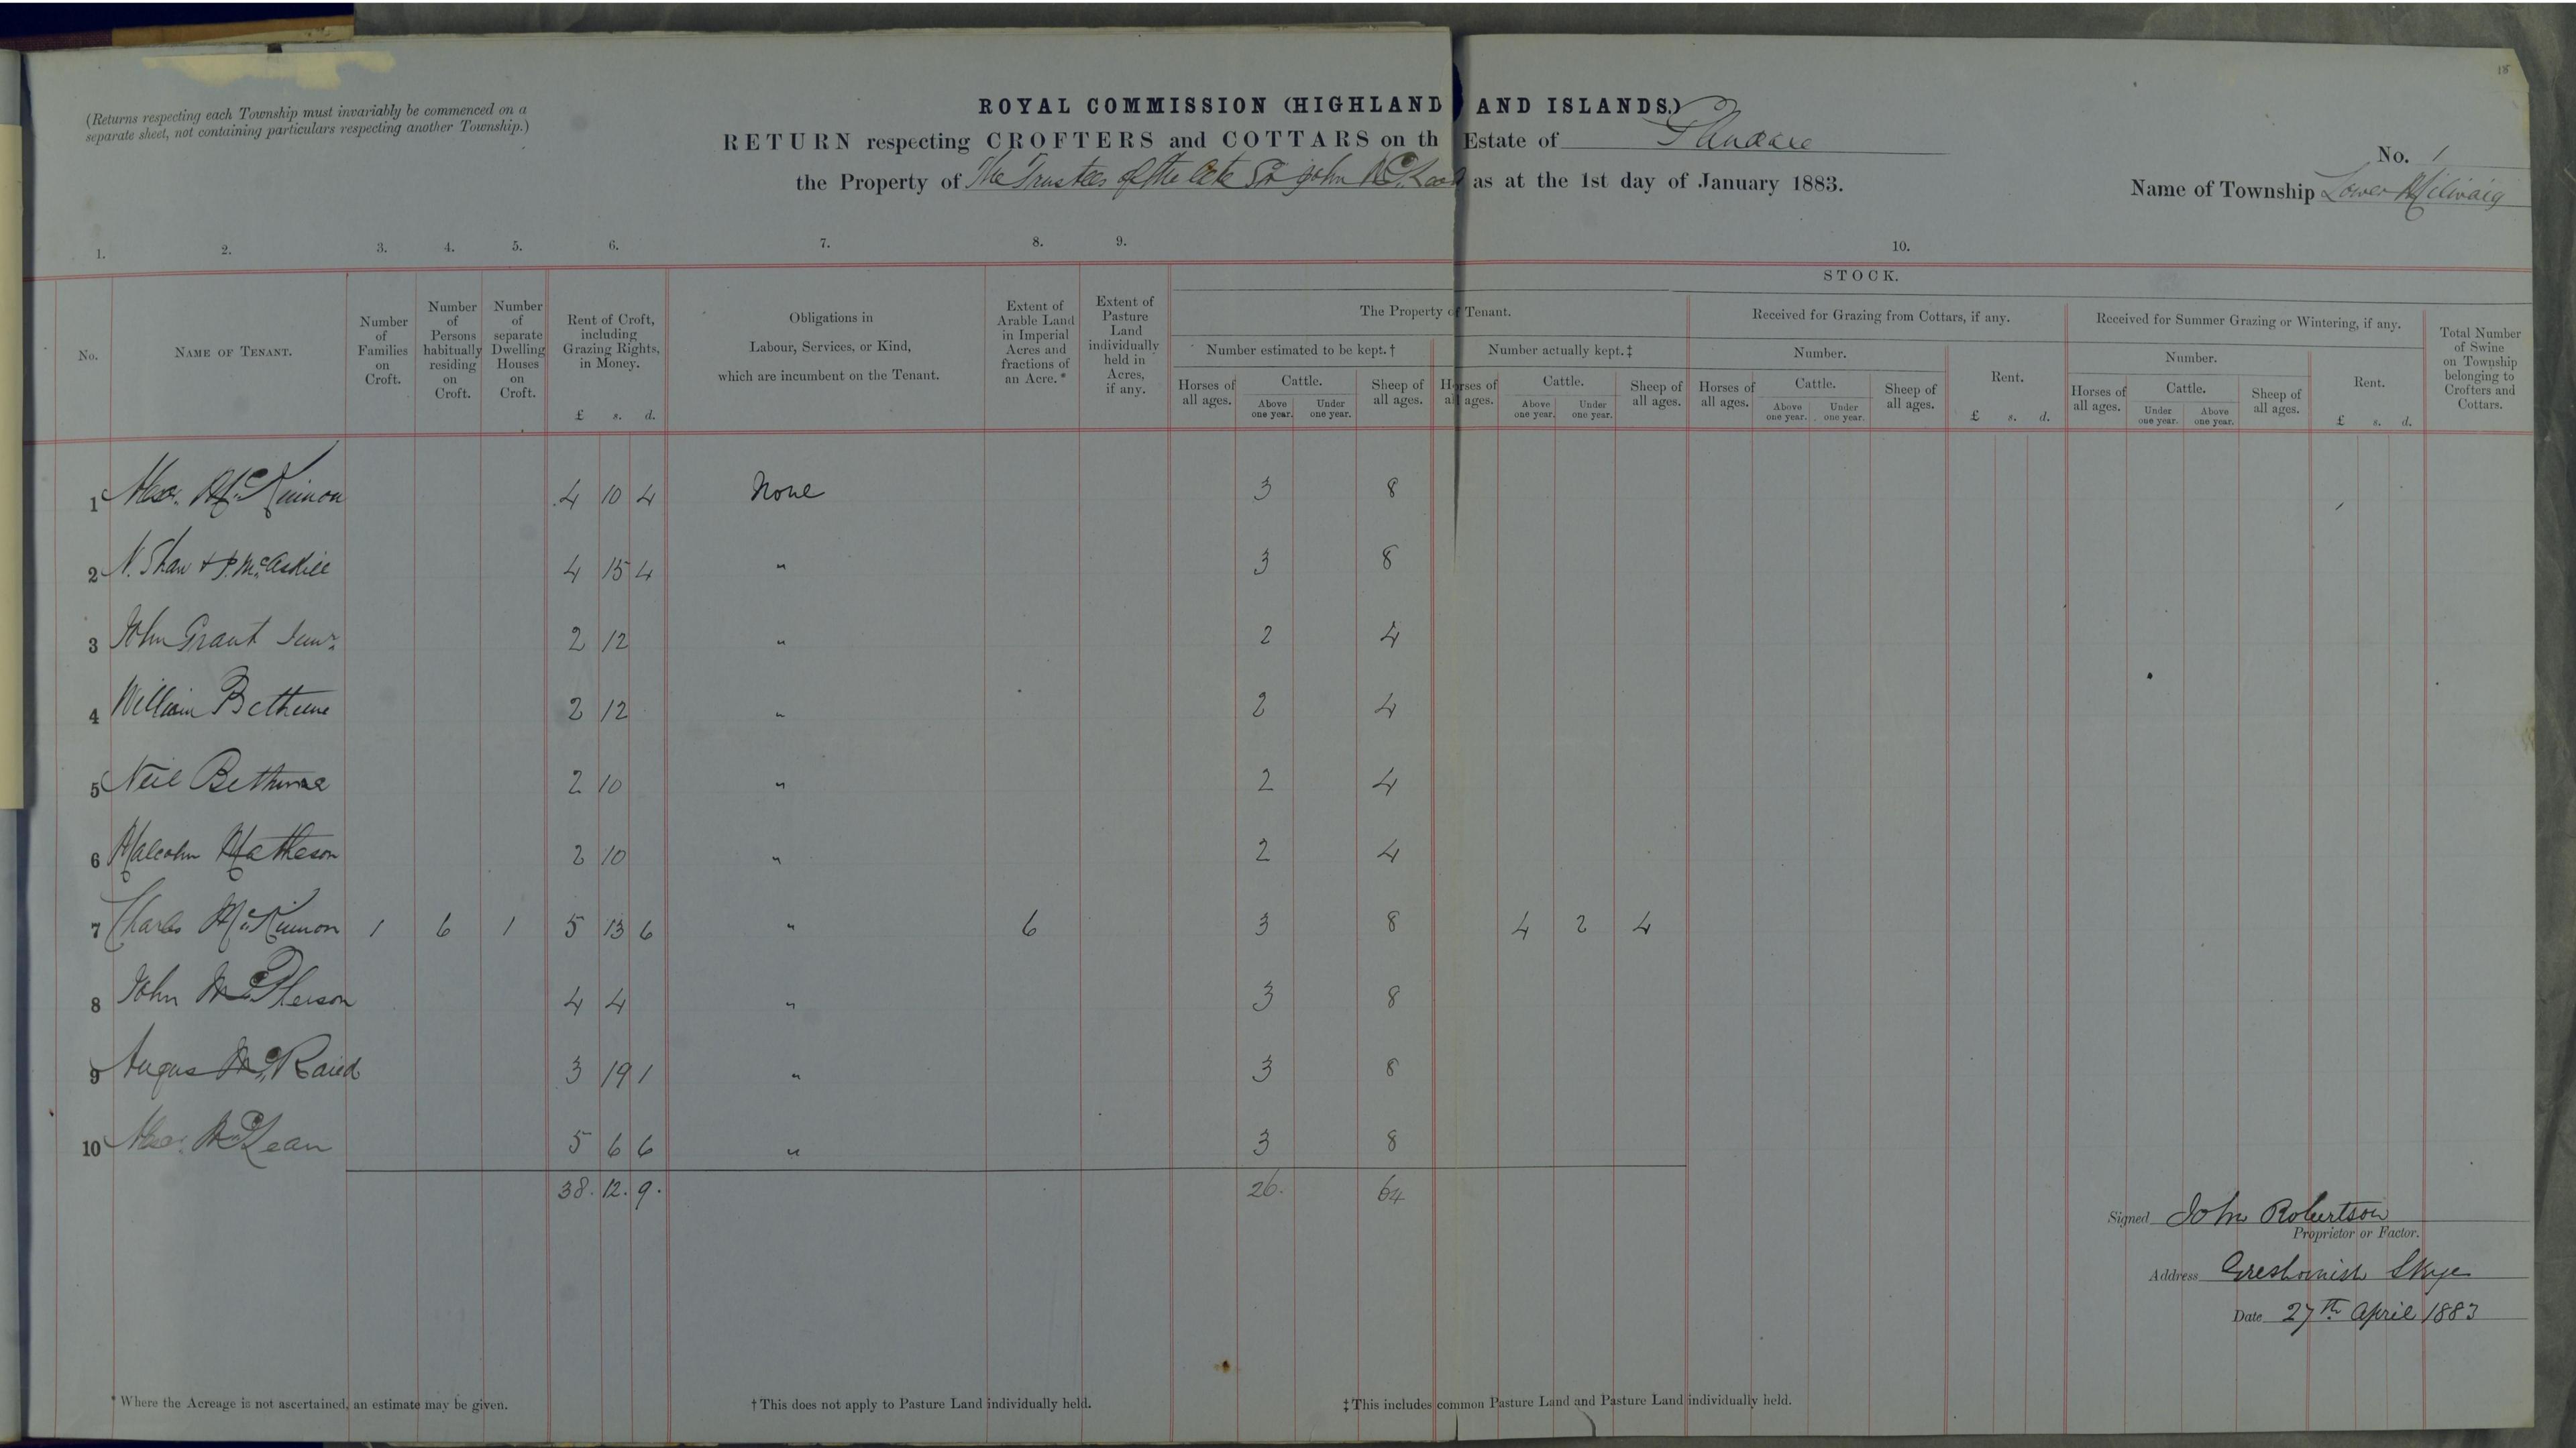 18
(Returns respecting each Township must invariably be commenced on a
separate sheet, not containing particulars respecting another Township.)
ROYAL COMMISSION (HIGHLAND AND ISLANDS.)
RETURN respecting CROFTERS and COTTARS on th Estate of Glendale
the Property of The Trustees of the late Sir John McLeod as at the 1st day of January 1883.
No. 1
Name of Township Lower Milivaig
1. 2. 3. 4. 5. 6. 7. 8. 9. 10.
STOCK.
No.
NAME OF TENANT.
Number of Families on Croft.
Number of Persons habitually residing on Croft.
Number of separate Dwelling Houses on Croft.
Rent of Croft, including Grazing Rights, in Money.
£ s. d.
Obligations in Labour, Services, or Kind, which are incumbent on the Tenant.
Extent of Arable Land in Imperial Acres and fractions of an Acre.*
Extent of Pasture Land individually held in Acres, if any.
The Property of Tenant.
Number estimated to be kept.†
Horses of all ages.
Cattle.
Above one year.
Under one year.
Sheep of all ages.
Number actually kept.‡
Horses of all ages.
Cattle.
Above one year.
Under one year.
Sheep of all ages.
Received for Grazing from Cottars, if any.
Number.
Horses of all ages.
Cattle.
Above one year.
Under one year.
Sheep of all ages.
Rent.
£ s. d.
Received for Summer Grazing or Wintering, if any.
Number.
Horses of all ages.
Cattle.
Under one year.
Above one year.
Sheep of all ages.
Rent.
£ s. d.
Total Number of Swine on Township belonging to Crofters and Cottars.
1 Alexr. McKinnon 4 10 4 None 3 8
2 N. Shaw & P. McAskill 4 15 4 " 3 8
3 John Grant Junr. 2 12 " 2 4
4 William Bethune 2 12 " 2 4
5 Neil Bethune 2 10 " 2 4
6 Malcolm Matheson 2 10 " 2 4
7 Charles McKinnon 1 6 1 5 13 6 " 6 3 8 4 2 4
8 John McPherson 4 4 " 3 8
9 Angus McRaild 3 19 1 " 3 8
10 Alexr. McLean 5 6 6 " 3 8
38. 12. 9. 26. 64
Signed John Robertson
Proprietor or Factor.
Address Greshornish Skye
Date 27th April 1883
* Where the Acreage is not ascertained, an estimate may be given.
† This does not apply to Pasture Land individually held.
‡ This includes common Pasture Land and Pasture Land individually held.